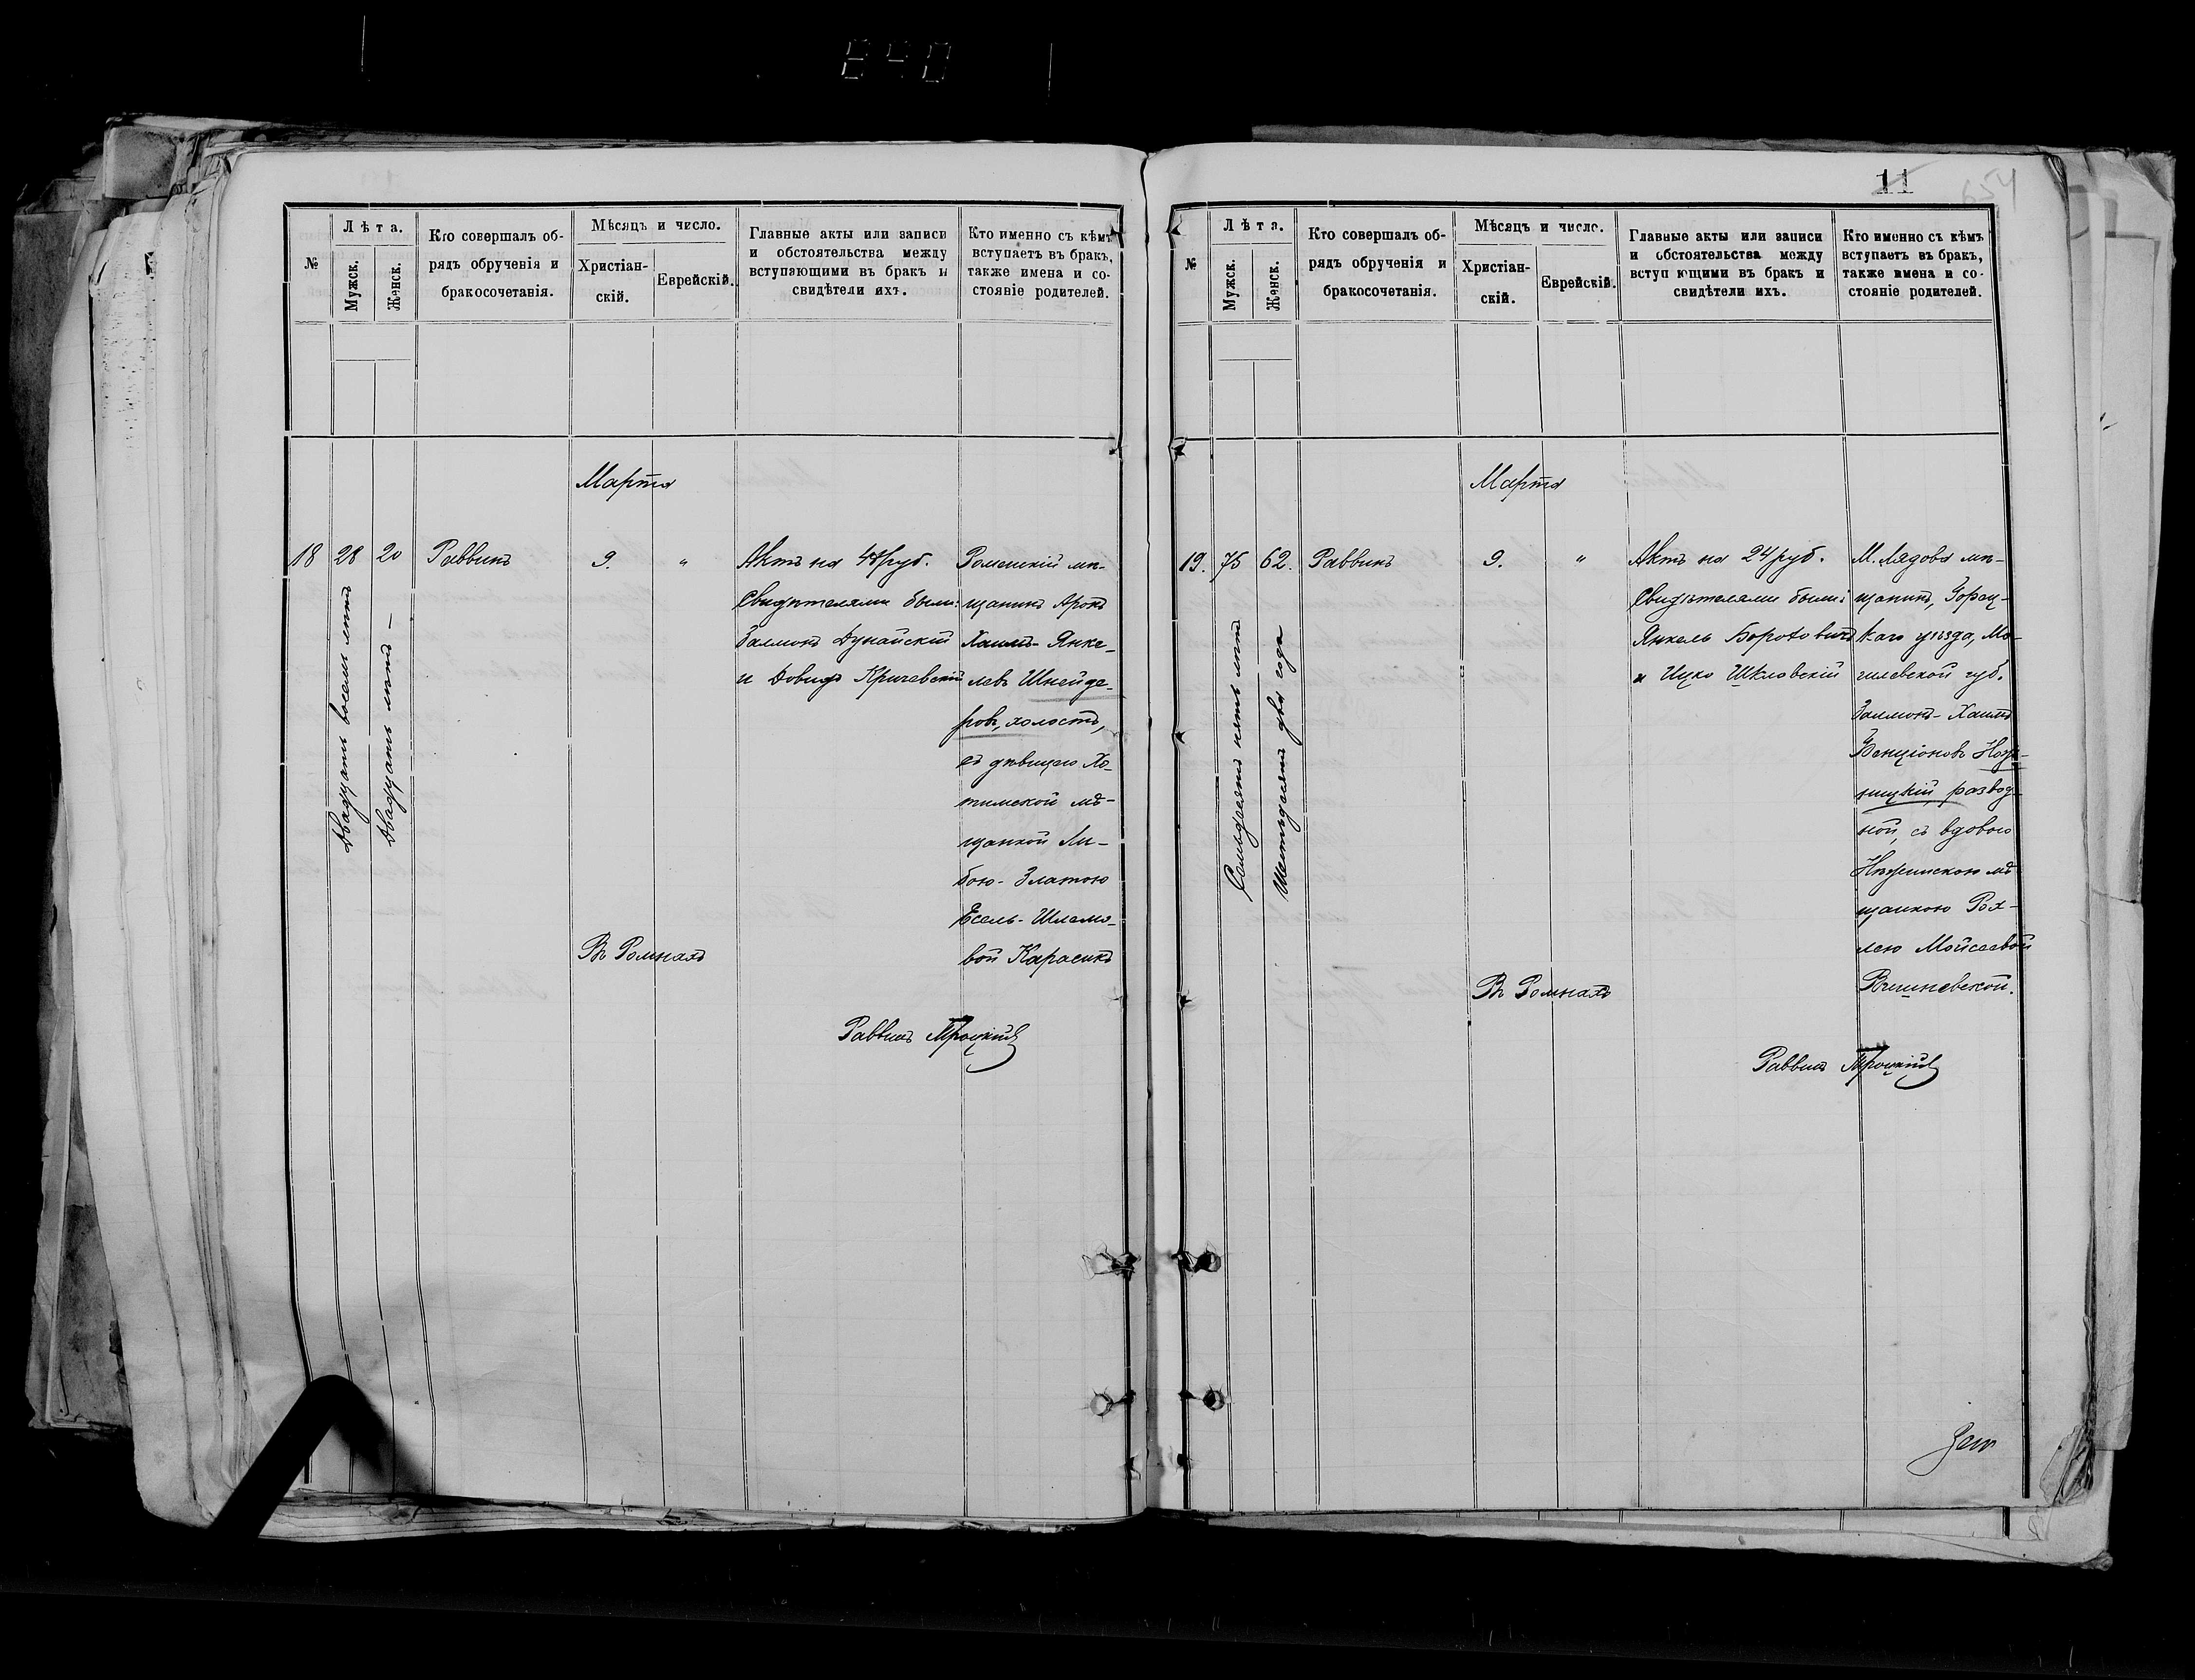 840
11
654
№
Лѣта.
Мужск.
Женск.
Кто совершалъ об-
рядъ обрученія и
бракосочетанія.
Мѣсяцъ и число.
Христіан-
скій.
Еврейскій.
Главные акты или записи
и обстоятельства между
вступающими въ бракъ и
свидѣтели ихъ.
Кто именно съ кѣмъ
вступаетъ въ бракъ,
также имена и со-
стояніе родителей.
Марта
18 28 20 Раввинъ 9. "
Двадцать восемь лѣтъ
Двадцать лѣтъ —
Актъ на 48 руб.
Свидѣтелями были:
Залмонъ Дунайскій
и Довидъ Кричевскій
Роменскій мѣ-
щанинъ Аронъ
Хаимъ-Янке-
левъ Шнейде-
ровъ, холостъ,
съ дѣвицею Хо-
тимской мѣ-
щанкой Ли-
бою-Златою
Есель-Шлемо-
вой Карасикъ
Въ Ромнахъ
Раввинъ Троцкій
№
Лѣта.
Мужск.
Женск.
Кто совершалъ об-
рядъ обрученія и
бракосочетанія.
Мѣсяцъ и число.
Христіан-
скій.
Еврейскій.
Главные акты или записи
и обстоятельства между
вступ ющими въ бракъ и
свидѣтели ихъ.
Кто именно съ кѣмъ
вступаетъ въ бракъ,
также имена и со-
стояніе родителей.
Марта
19. 75 62. Раввинъ 9. "
Семьдесятъ пять лѣтъ
Шестьдесятъ два года
Актъ на 24 руб.
Свидѣтелями были:
Янкель Бороховичъ
и Ицко Шкловскій
М. Лядова мѣ-
щанинъ, Горец-
каго уѣзда, Мо-
гилевской губ.
Залмонъ-Хаимъ
Бенціоновъ
развод-
ной, съ вдовою
Нѣжинскою мѣ-
щанкою Рох-
лею Мойсеевой
Вишневской.
Въ Ромнахъ
Раввинъ Троцкій